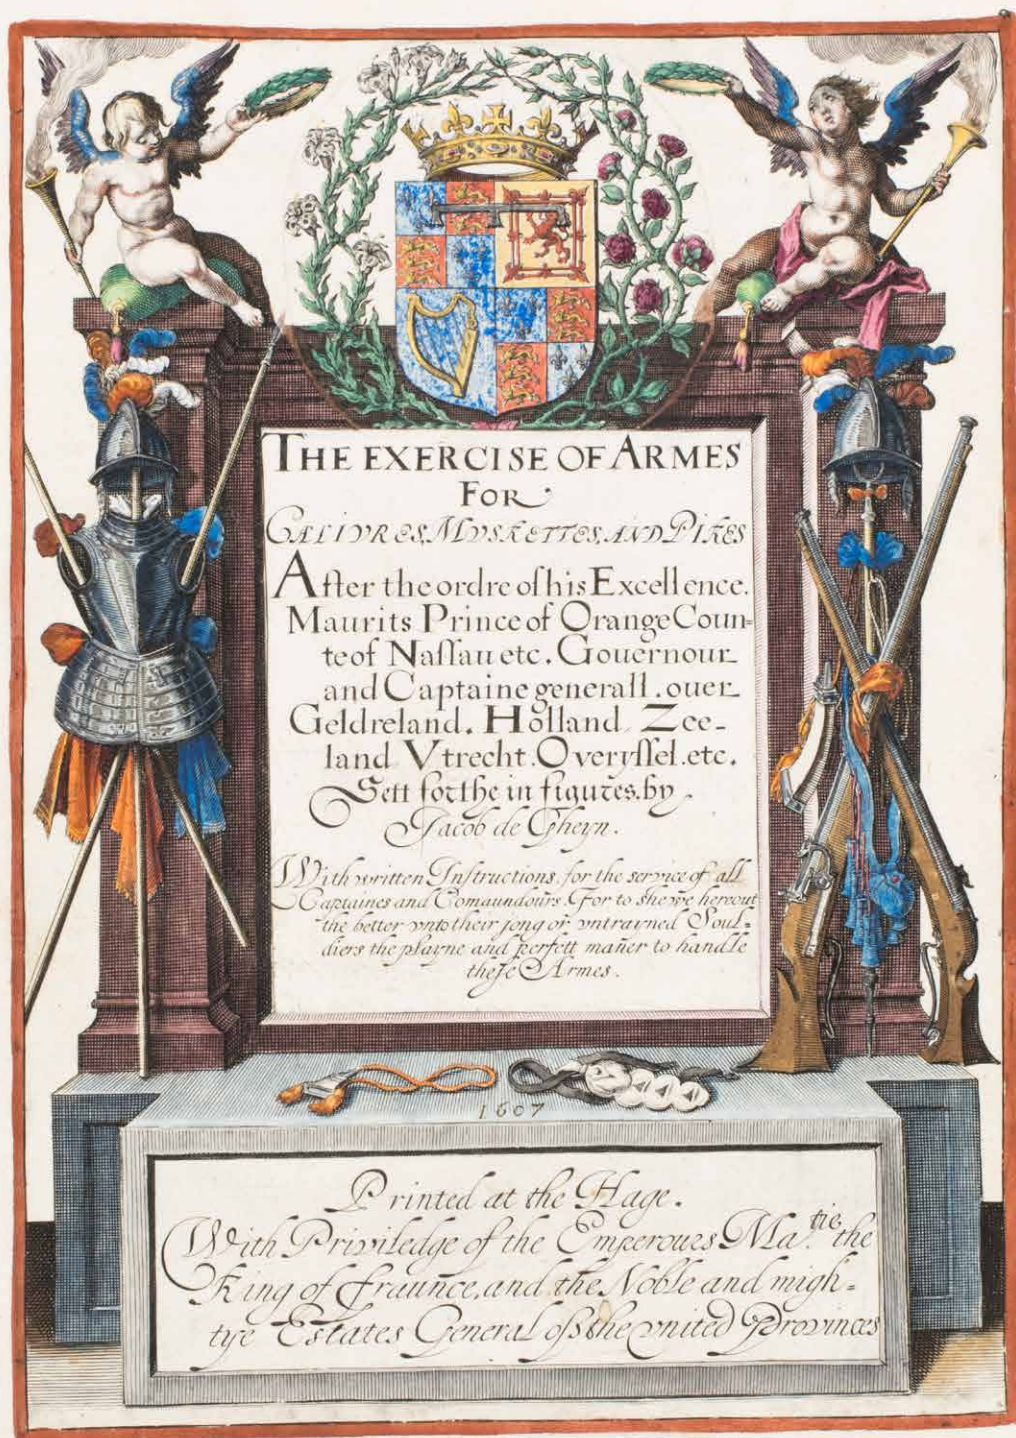 THE EXERCISE OF ARMES
FOR
CALIVRES, MVSKETTES, AND PIKES
After the ordre of his Excellence.
Maurits Prince of Orange Coun=
te of Naſſau etc. Gouernour
and Captaine generall. ouer
Geldreland. Holland Zee-
land Vtrecht. Overyſſel. etc.
Sett forthe in figures. by
Jacob de Gheyn.
With written Instructions. for the service of all
Captaines and Comaundours. For to shewe hereout
the better vnto their jong or vntrayned Soul=
diers the playne and perfett mañer to handle
theſe Armes.
1607
Printed at the Hage.
With Priviledge of the Emperours Ma.tie the
King of fraunce, and the Noble and migh=
tye Estates General of the vnited Provinces